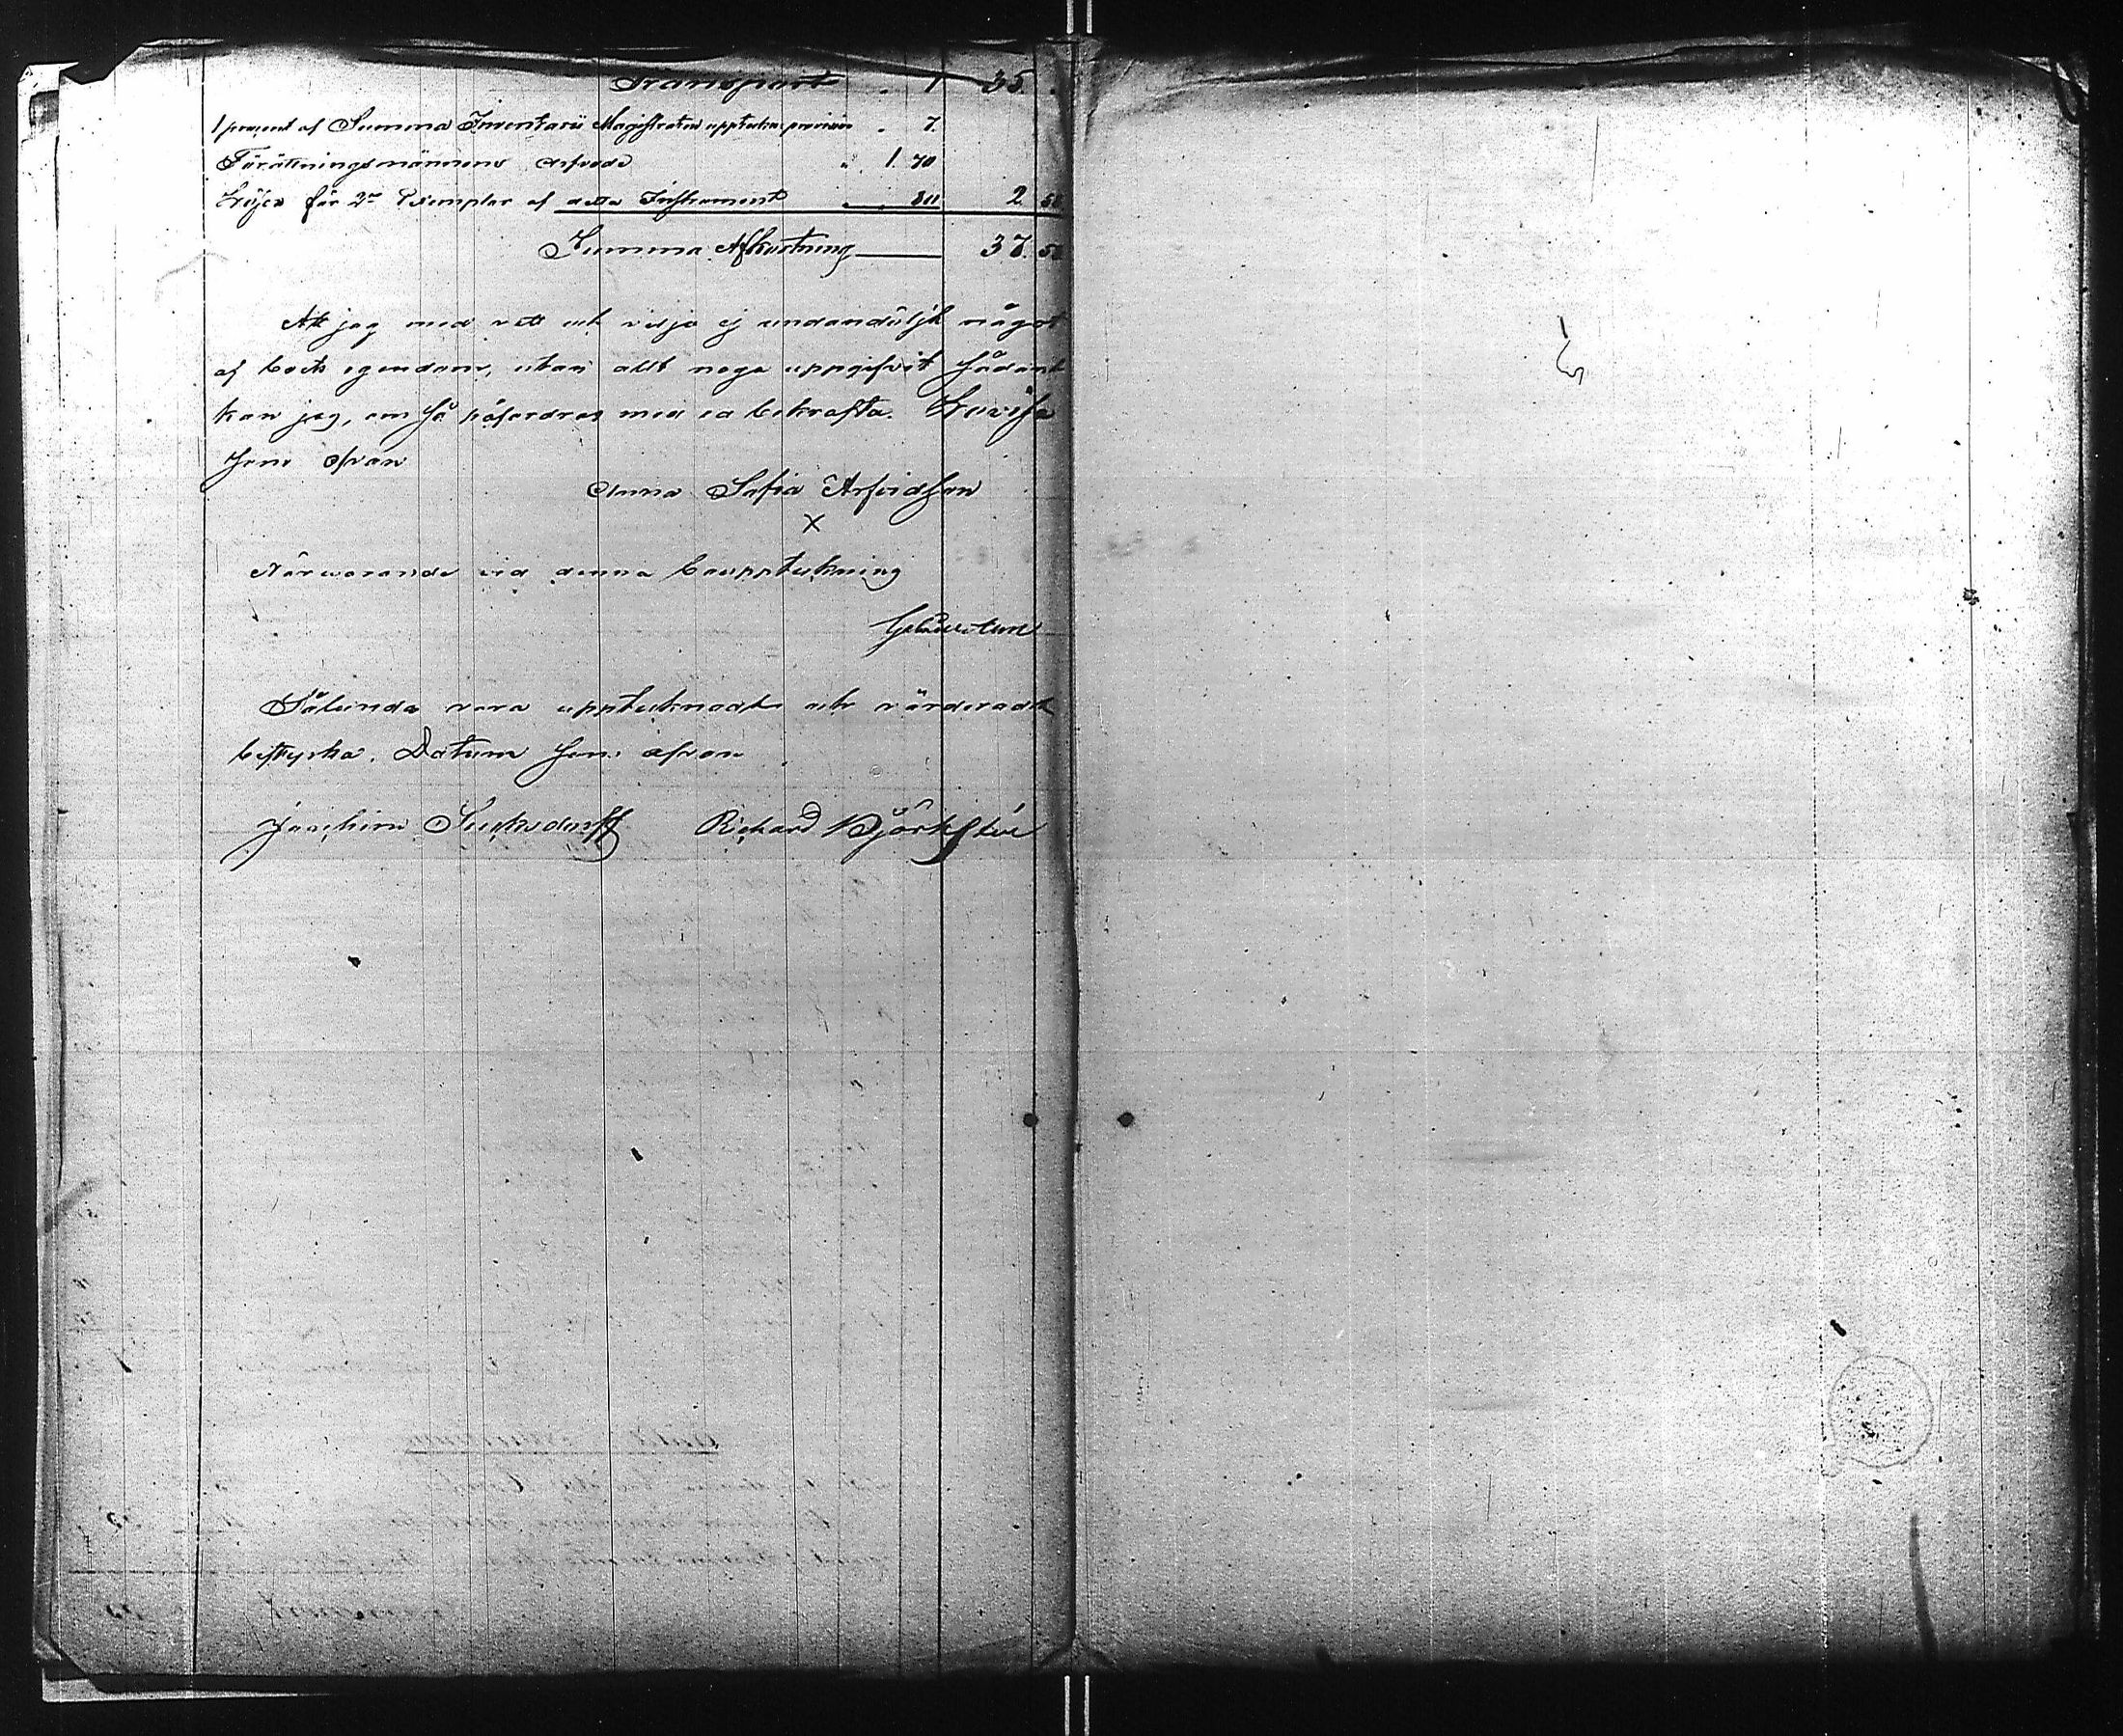 Transport . 1 35
1 procent af Summa Inventarii Magistratens uppteckn. provision . 7.
Förrättningsmännens arfvode " 1. 70
Lösen för 2ne Exemplar af detta Instrument . 80 2 5
Summa Afkortning 37. 5
Att jag med vett och vilja ej undandöljt något
af boets egendom, utan allt noga uppgifvit sådant
kan jag, om så påfordras med ed bekräfta. Lovisa
som ofvan
Anna Sofia Arfvidsson
X
Närvarande vid denna bouppteckning
Sålunda vara upptecknadt och värderadt
bestyrka. Datum som ofvan
Joachim Sucksdorff Richard Björkstén